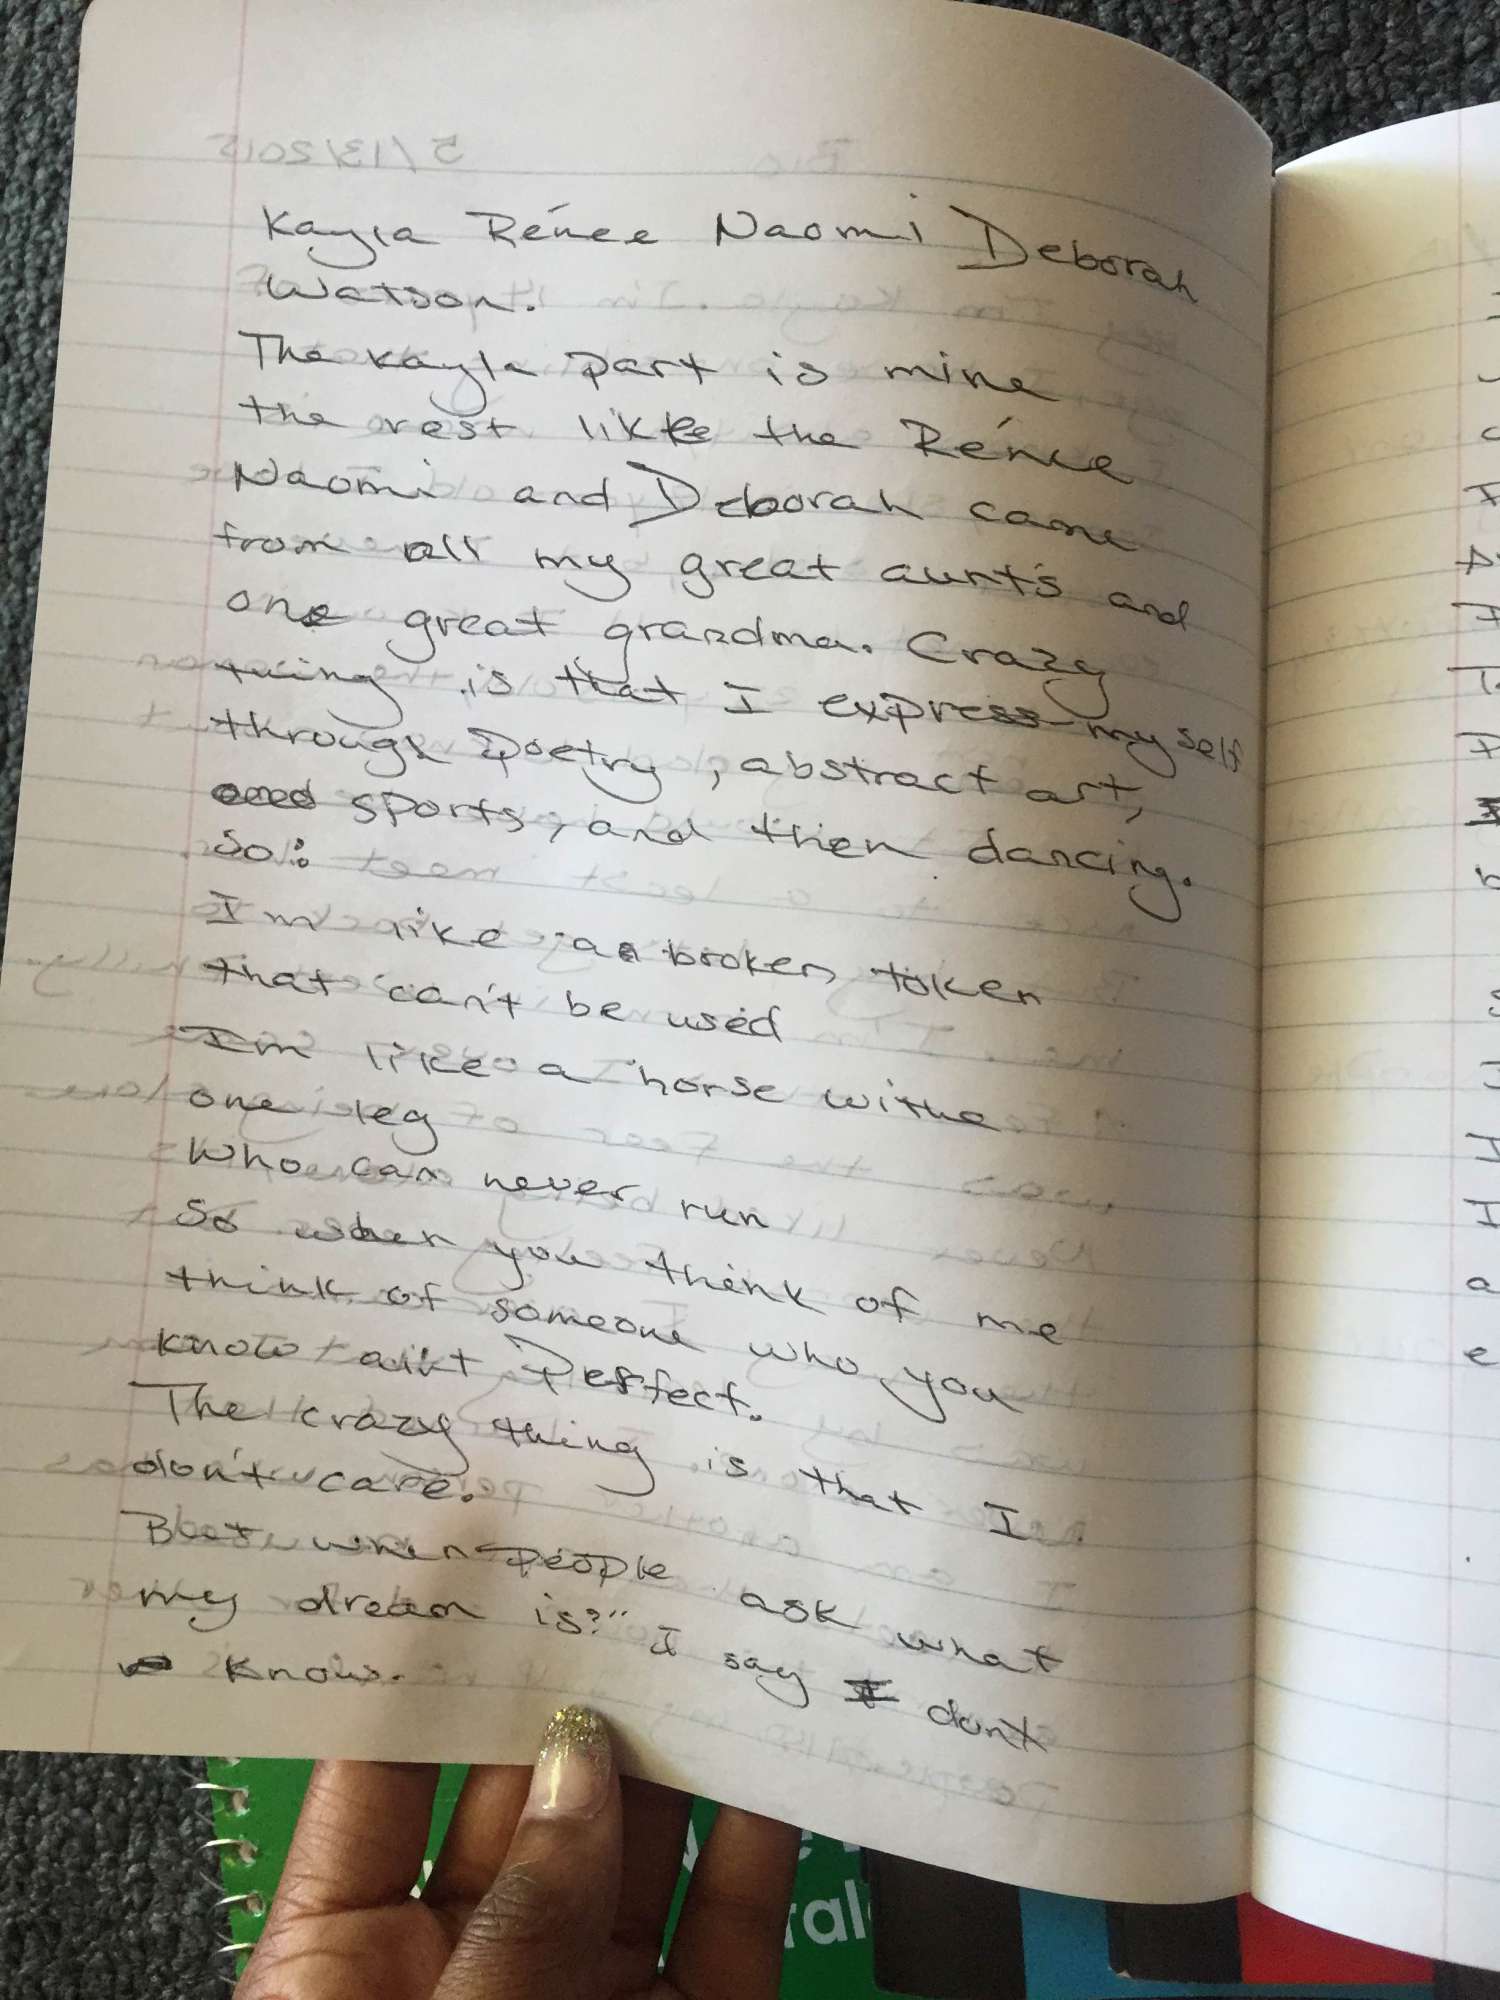 Kayla Rénee Naomi Deborah
Watson.
The Kayla part is mine
the rest like the Rénee
Naomi and Deborah came
from all my great aunt's and
one great grandma. Crazy
thing is that I express myself
through poetry, abstract art,
sports, and then dancing.
So:
I'm like a broken token
that can't be used
I'm like a horse withe
one leg
Who can never run
So when you think of me
think of someone who you
know ain't Perfect.
The crazy thing is that I
don't care.
But when People ask what
my dream is?" I say I don't
know.
5/13/2015
Bio